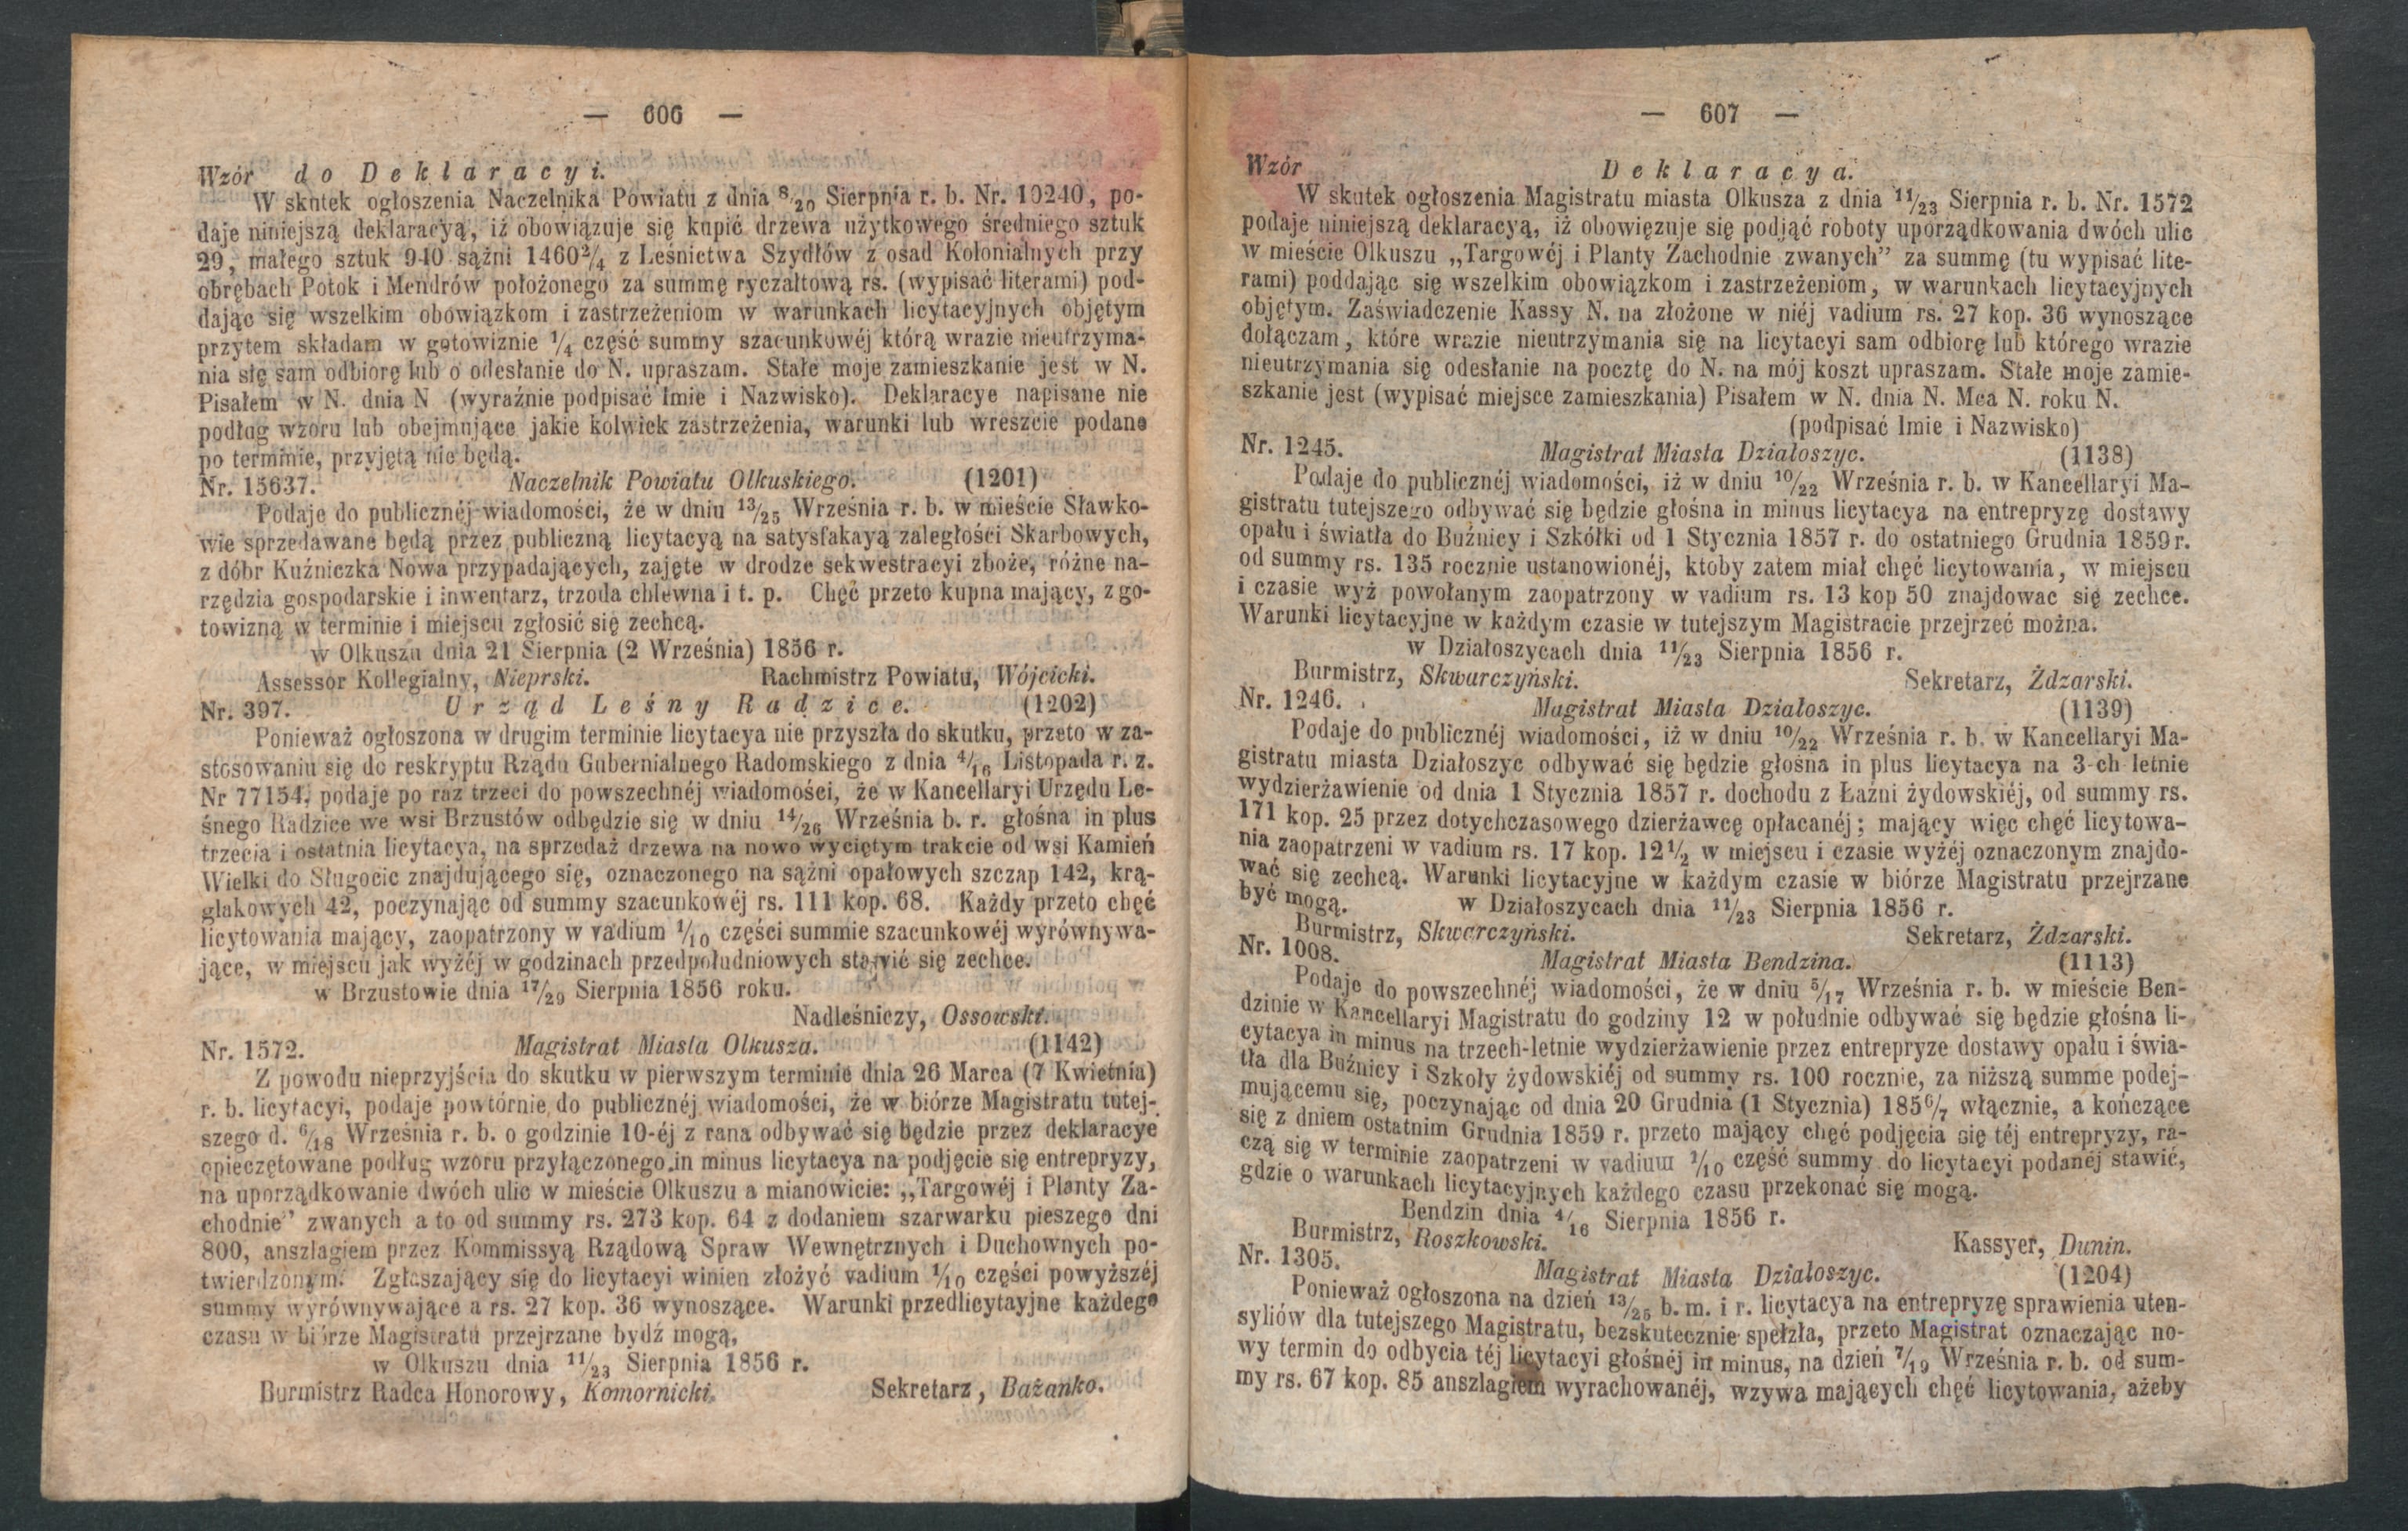 — 606 —
Wzór do Deklaracyi.
W skutek ogłoszenia Naczelnika Powiatu z dnia 8/20 Sierpnia r. b. Nr. 10240, po-
daje niniejszą deklaracyą, iż obowiązuje się kupić drzewa użytkowego średniego sztuk
29, małego sztuk 940 sążni 1460 2/4 z Leśnictwa Szydłów z osad Kolonialnych przy
obrębach Potok i Mendrów położonego za summę ryczałtową rs. (wypisać literami) pod-
dając się wszelkim obowiązkom i zastrzeżeniom w warunkach licytacyjnych objętym
przytem składam w gotowiznie 1/4 część summy szacunkowéj którą wrazie nieutrzyma-
nia się sam odbiorę lub o odesłanie do N. upraszam. Stałe moje zamieszkanie jest w N.
Pisałem w N. dnia N (wyraźnie podpisać Imie i Nazwisko). Deklaracye napisane nie
podług wzoru lub obejmujące jakie kolwiek zastrzeżenia, warunki lub wreszcie podane
po terminie, przyjętą nie będą.
Nr. 15637. Naczelnik Powiatu Olkuskiego. (1201)
Podaje do publicznéj wiadomości, że w dniu 13/25 Września r. b. w mieście Sławko-
wie sprzedawane będą przez publiczną licytacyą na satysfakayą zaległości Skarbowych,
z dóbr Kuźniczka Nowa przypadających, zajęte w drodze sekwestracyi zboże, różne na-
rzędzia gospodarskie i inwentarz, trzoda chlewna i t. p. Chęć przeto kupna mający, z go-
towizną w terminie i miejscu zgłosić się zechcą.
w Olkuszu dnia 21 Sierpnia (2 Września) 1856 r.
Assessor Kollegialny, Nieprski. Rachmistrz Powiatu, Wójcicki.
Nr. 397. Urząd Leśny Radzice. (1202)
Ponieważ ogłoszona w drugim terminie licytacya nie przyszła do skutku, przeto w za-
stosowaniu się do reskryptu Rządu Gubernialnego Radomskiego z dnia 4/16 Listopada r. z.
Nr 77154, podaje po raz trzeci do powszechnéj wiadomości, że w Kancellaryi Urzędu Le-
śnego Radzice we wsi Brzustów odbędzie się w dniu 14/26 Września b. r. głośna in plus
trzecia i ostatnia licytacya, na sprzedaż drzewa na nowo wyciętym trakcie od wsi Kamień
Wielki do Sługocic znajdującego się, oznaczonego na sążni opałowych szczap 142, krą-
glakowych 42, poczynając od summy szacunkowéj rs. 111 kop. 68. Każdy przeto chęć
licytowania mający, zaopatrzony w vadium 1/10 części summie szacunkowéj wyrównywa-
jące, w miejscu jak wyżéj w godzinach przedpołudniowych stawić się zechce.
w Brzustowie dnia 17/29 Sierpnia 1856 roku.
Nadleśniczy, Ossowski.
Nr. 1572. Magistrat Miasta Olkusza. (1142)
Z powodu nieprzyjścia do skutku w pierwszym terminie dnia 26 Marca (7 Kwietnia)
r. b. licytacyi, podaje powtórnie do publicznéj wiadomości, że w biórze Magistratu tutej-
szego d. 6/18 Września r. b. o godzinie 10-éj z rana odbywać się będzie przez deklaracye
opieczętowane podług wzoru przyłączonego in minus licytacya na podjęcie się entrepryzy,
na uporządkowanie dwóch ulic w mieście Olkuszu a mianowicie: „Targowéj i Planty Za-
chodnie” zwanych a to od summy rs. 273 kop. 64 z dodaniem szarwarku pieszego dni
800, anszlagiem przez Kommissyą Rządową Spraw Wewnętrznych i Duchownych po-
twierdzonym. Zgłaszający się do licytacyi winien złożyć vadium 1/10 części powyższéj
summy wyrównywające a rs. 27 kop. 36 wynoszące. Warunki przedlicytayjne każdego
czasu w biórze Magistratu przejrzane bydź mogą,
w Olkuszu dnia 11/23 Sierpnia 1856 r.
Burmistrz Radca Honorowy, Komornicki. Sekretarz, Bażanko.
— 607 —
Wzór Deklaracya.
W skutek ogłoszenia Magistratu miasta Olkusza z dnia 11/23 Sierpnia r. b. Nr. 1572
podaje niniejszą deklaracyą, iż obowięzuje się podjąć roboty uporządkowania dwóch ulic
w mieście Olkuszu „Targowéj i Planty Zachodnie zwanych” za summę (tu wypisać lite-
rami) poddając się wszelkim obowiązkom i zastrzeżeniom, w warunkach licytacyjnych
objętym. Zaświadczenie Kassy N. na złożone w niéj vadium rs. 27 kop. 36 wynoszące
dołączam, które wrazie nieutrzymania się na licytacyi sam odbiorę lub którego wrazie
nieutrzymania się odesłanie na pocztę do N. na mój koszt upraszam. Stałe moje zamie-
szkanie jest (wypisać miejsce zamieszkania) Pisałem w N. dnia N. Mca N. roku N.
(podpisać Imie i Nazwisko)
Nr. 1245. Magistrat Miasta Działoszyc. (1138)
Podaje do publicznéj wiadomości, iż w dniu 10/22 Września r. b. w Kancellaryi Ma-
gistratu tutejszego odbywać się będzie głośna in minus licytacya na entrepryzę dostawy
opału i światła do Buźnicy i Szkółki od 1 Stycznia 1857 r. do ostatniego Grudnia 1859 r.
od summy rs. 135 rocznie ustanowionéj, ktoby zatem miał chęć licytowania, w miejscu
i czasie wyż powołanym zaopatrzony w vadium rs. 13 kop 50 znajdowac się zechce.
Warunki licytacyjne w każdym czasie w tutejszym Magistracie przejrzeć można.
w Działoszycach dnia 11/23 Sierpnia 1856 r.
Burmistrz, Skwarczyński. Sekretarz, Żdzarski.
Nr. 1246. Magistrat Miasta Działoszyc. (1139)
Podaje do publicznéj wiadomości, iż w dniu 10/22 Września r. b. w Kancellaryi Ma-
gistratu miasta Działoszyc odbywać się będzie głośna in plus licytacya na 3-ch letnie
wydzierżawienie od dnia 1 Stycznia 1857 r. dochodu z Łaźni żydowskiéj, od summy rs.
171 kop. 25 przez dotychczasowego dzierżawcę opłacanéj; mający więc chęć licytowa-
nia zaopatrzeni w vadium rs. 17 kop. 12 1/2 w miejscu i czasie wyżéj oznaczonym znajdo-
wać się zechcą. Warunki licytacyjne w każdym czasie w biórze Magistratu przejrzane
być mogą. w Działoszycach dnia 11/23 Sierpnia 1856 r.
Burmistrz, Skwarczyński. Sekretarz, Żdzarski.
Nr. 1008. Magistrat Miasta Bendzina. (1113)
Podaje do powszechnéj wiadomości, że w dniu 5/17 Września r. b. w mieście Ben-
dzinie w Kancellaryi Magistratu do godziny 12 w południe odbywać się będzie głośna li-
cytacya in minus na trzech-letnie wydzierżawienie przez entrepryze dostawy opału i świa-
tła dla Buźnicy i Szkoły żydowskiéj od summy rs. 100 rocznie, za niższą summe podej-
mującemu się, poczynając od dnia 20 Grudnia (1 Stycznia) 1856/7 włącznie, a kończące
się z dniem ostatnim Grudnia 1859 r. przeto mający chęć podjęcia się téj entrepryzy, ra-
czą się w terminie zaopatrzeni w vadium 1/10 część summy do licytacyi podanéj stawić,
gdzie o warunkach licytacyjnych każdego czasu przekonać się mogą.
Bendzin dnia 4/16 Sierpnia 1856 r.
Burmistrz, Roszkowski. Kassyer, Dunin.
Nr. 1305. Magistrat Miasta Działoszyc. (1204)
Ponieważ ogłoszona na dzień 13/25 b. m. i r. licytacya na entrepryzę sprawienia uten-
syliów dla tutejszego Magistratu, bezskutecznie spełzła, przeto Magistrat oznaczając no-
wy termin do odbycia téj licytacyi głośnéj in minus, na dzień 7/19 Września r. b. od sum-
my rs. 67 kop. 85 anszlagiem wyrachowanéj, wzywa mających chęć licytowania, ażeby